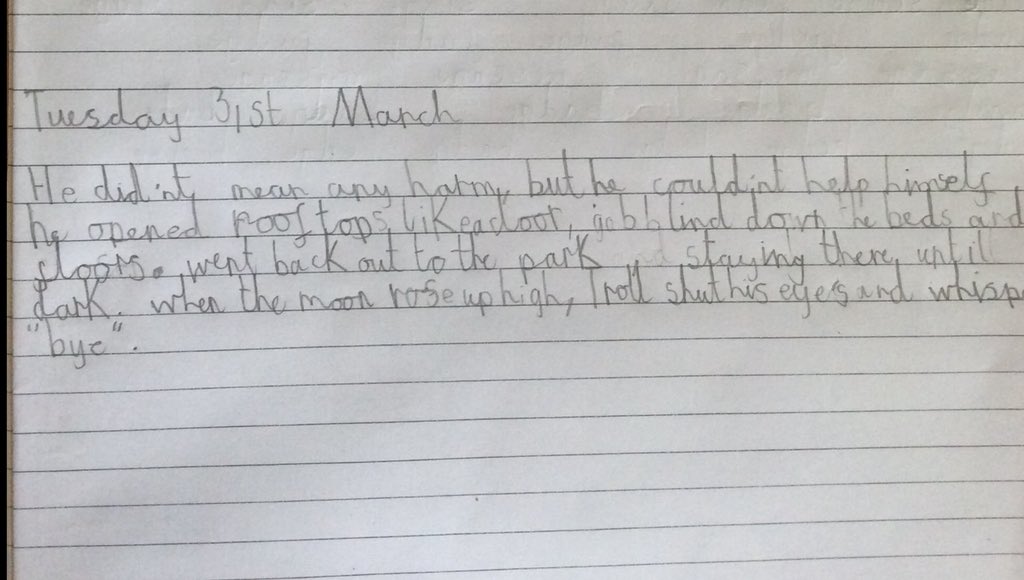 Tuesday 31st March
He did'nt mean any harm, but he could'nt help himself,
he opened rooftops like a door, gobblind down the beds and
floors. went back out to the park staying there, until
dark. when the moon rose up high, Troll shut his eyes and whisp
"bye".